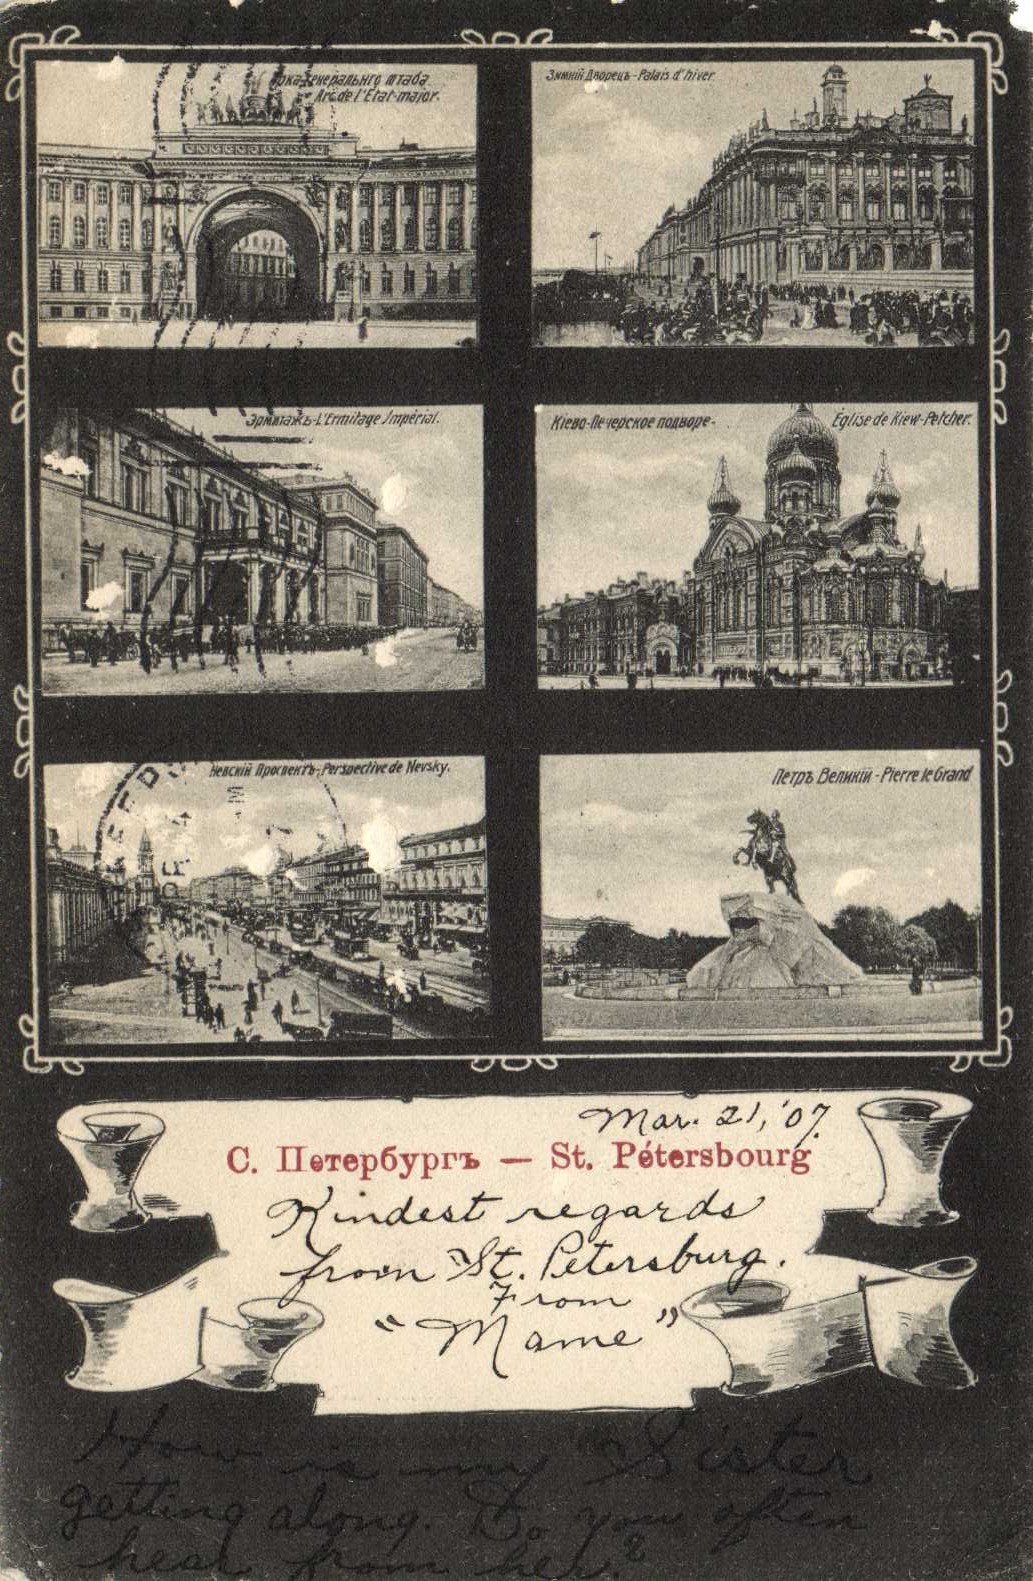 Арка Генеральнго штаба
Arc de l'Etat-major.
Зимній Дворецъ - Palais d'hiver
Эрмитажъ - L'Ermitage Impérial.
Кіево-Печерское подворе. Église de Kiew-Petcher.
Невскій Проспектъ - Perspective de Nevsky.
Петръ Великій - Pierre le Grand
Mar. 21, '07.
С. Петербургъ — St. Pétersbourg
Kindest regards
from "St. Petersburg.
From
"Mame"
How is my Sister
getting along. Do you often
hear from her?